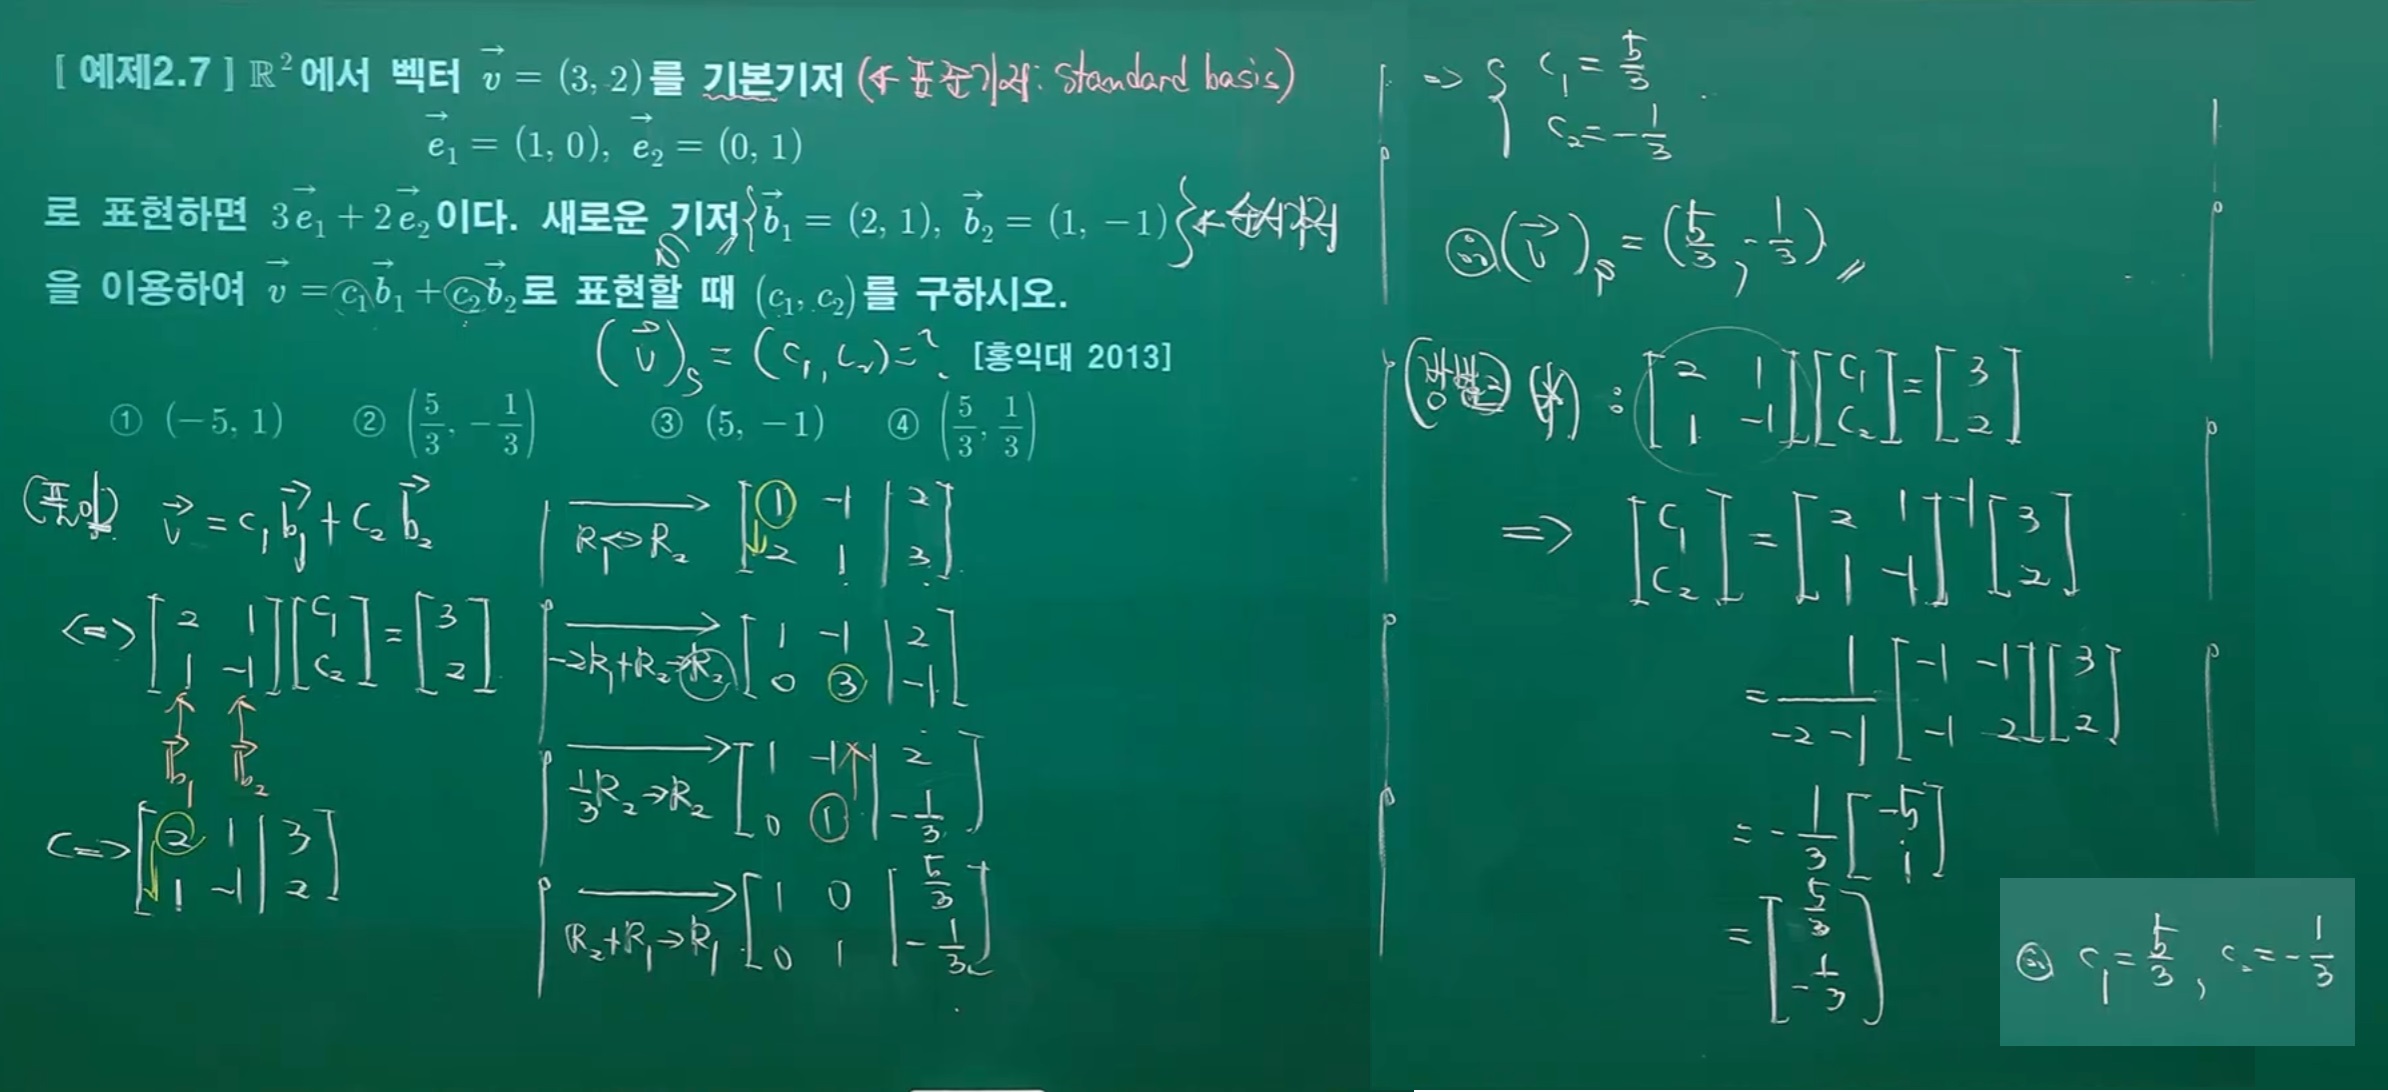 [ 예제2.7 ] ℝ² 에서 벡터 v⃗ = (3, 2)를 기본기저 (← 표준기저: Standard basis)
e⃗₁ = (1, 0), e⃗₂ = (0, 1)
로 표현하면 3e⃗₁ + 2e⃗₂ 이다. 새로운 기저 S {b⃗₁ = (2, 1), b⃗₂ = (1, −1)} ← 순서기저
을 이용하여 v⃗ = c₁b⃗₁ + c₂b⃗₂ 로 표현할 때 (c₁, c₂)를 구하시오.
(v⃗)_S = (c₁, c₂) = ? [홍익대 2013]
① (−5, 1) ② (5/3, −1/3) ③ (5, −1) ④ (5/3, 1/3)
(풀이) v⃗ = c₁b⃗₁ + c₂b⃗₂
<=> [2 1; 1 -1] [c₁; c₂] = [3; 2]
↑ ↑
b⃗₁ b⃗₂
<=> [2 1 | 3; 1 -1 | 2]
R₁↔R₂ → [1 -1 | 2; 2 1 | 3]
-2R₁+R₂→R₂ → [1 -1 | 2; 0 3 | -1]
1/3 R₂→R₂ → [1 -1 | 2; 0 1 | -1/3]
R₂+R₁→R₁ → [1 0 | 5/3; 0 1 | -1/3]
=> { c₁ = 5/3
c₂ = -1/3
∴ (v⃗)_S = (5/3, -1/3) //
(방법2) (*) : [2 1; 1 -1] [c₁; c₂] = [3; 2]
=> [c₁; c₂] = [2 1; 1 -1]⁻¹ [3; 2]
= 1/(-2-1) [-1 -1; -1 2] [3; 2]
= -1/3 [-5; 1]
= [5/3; -1/3]
∴ c₁ = 5/3, c₂ = -1/3